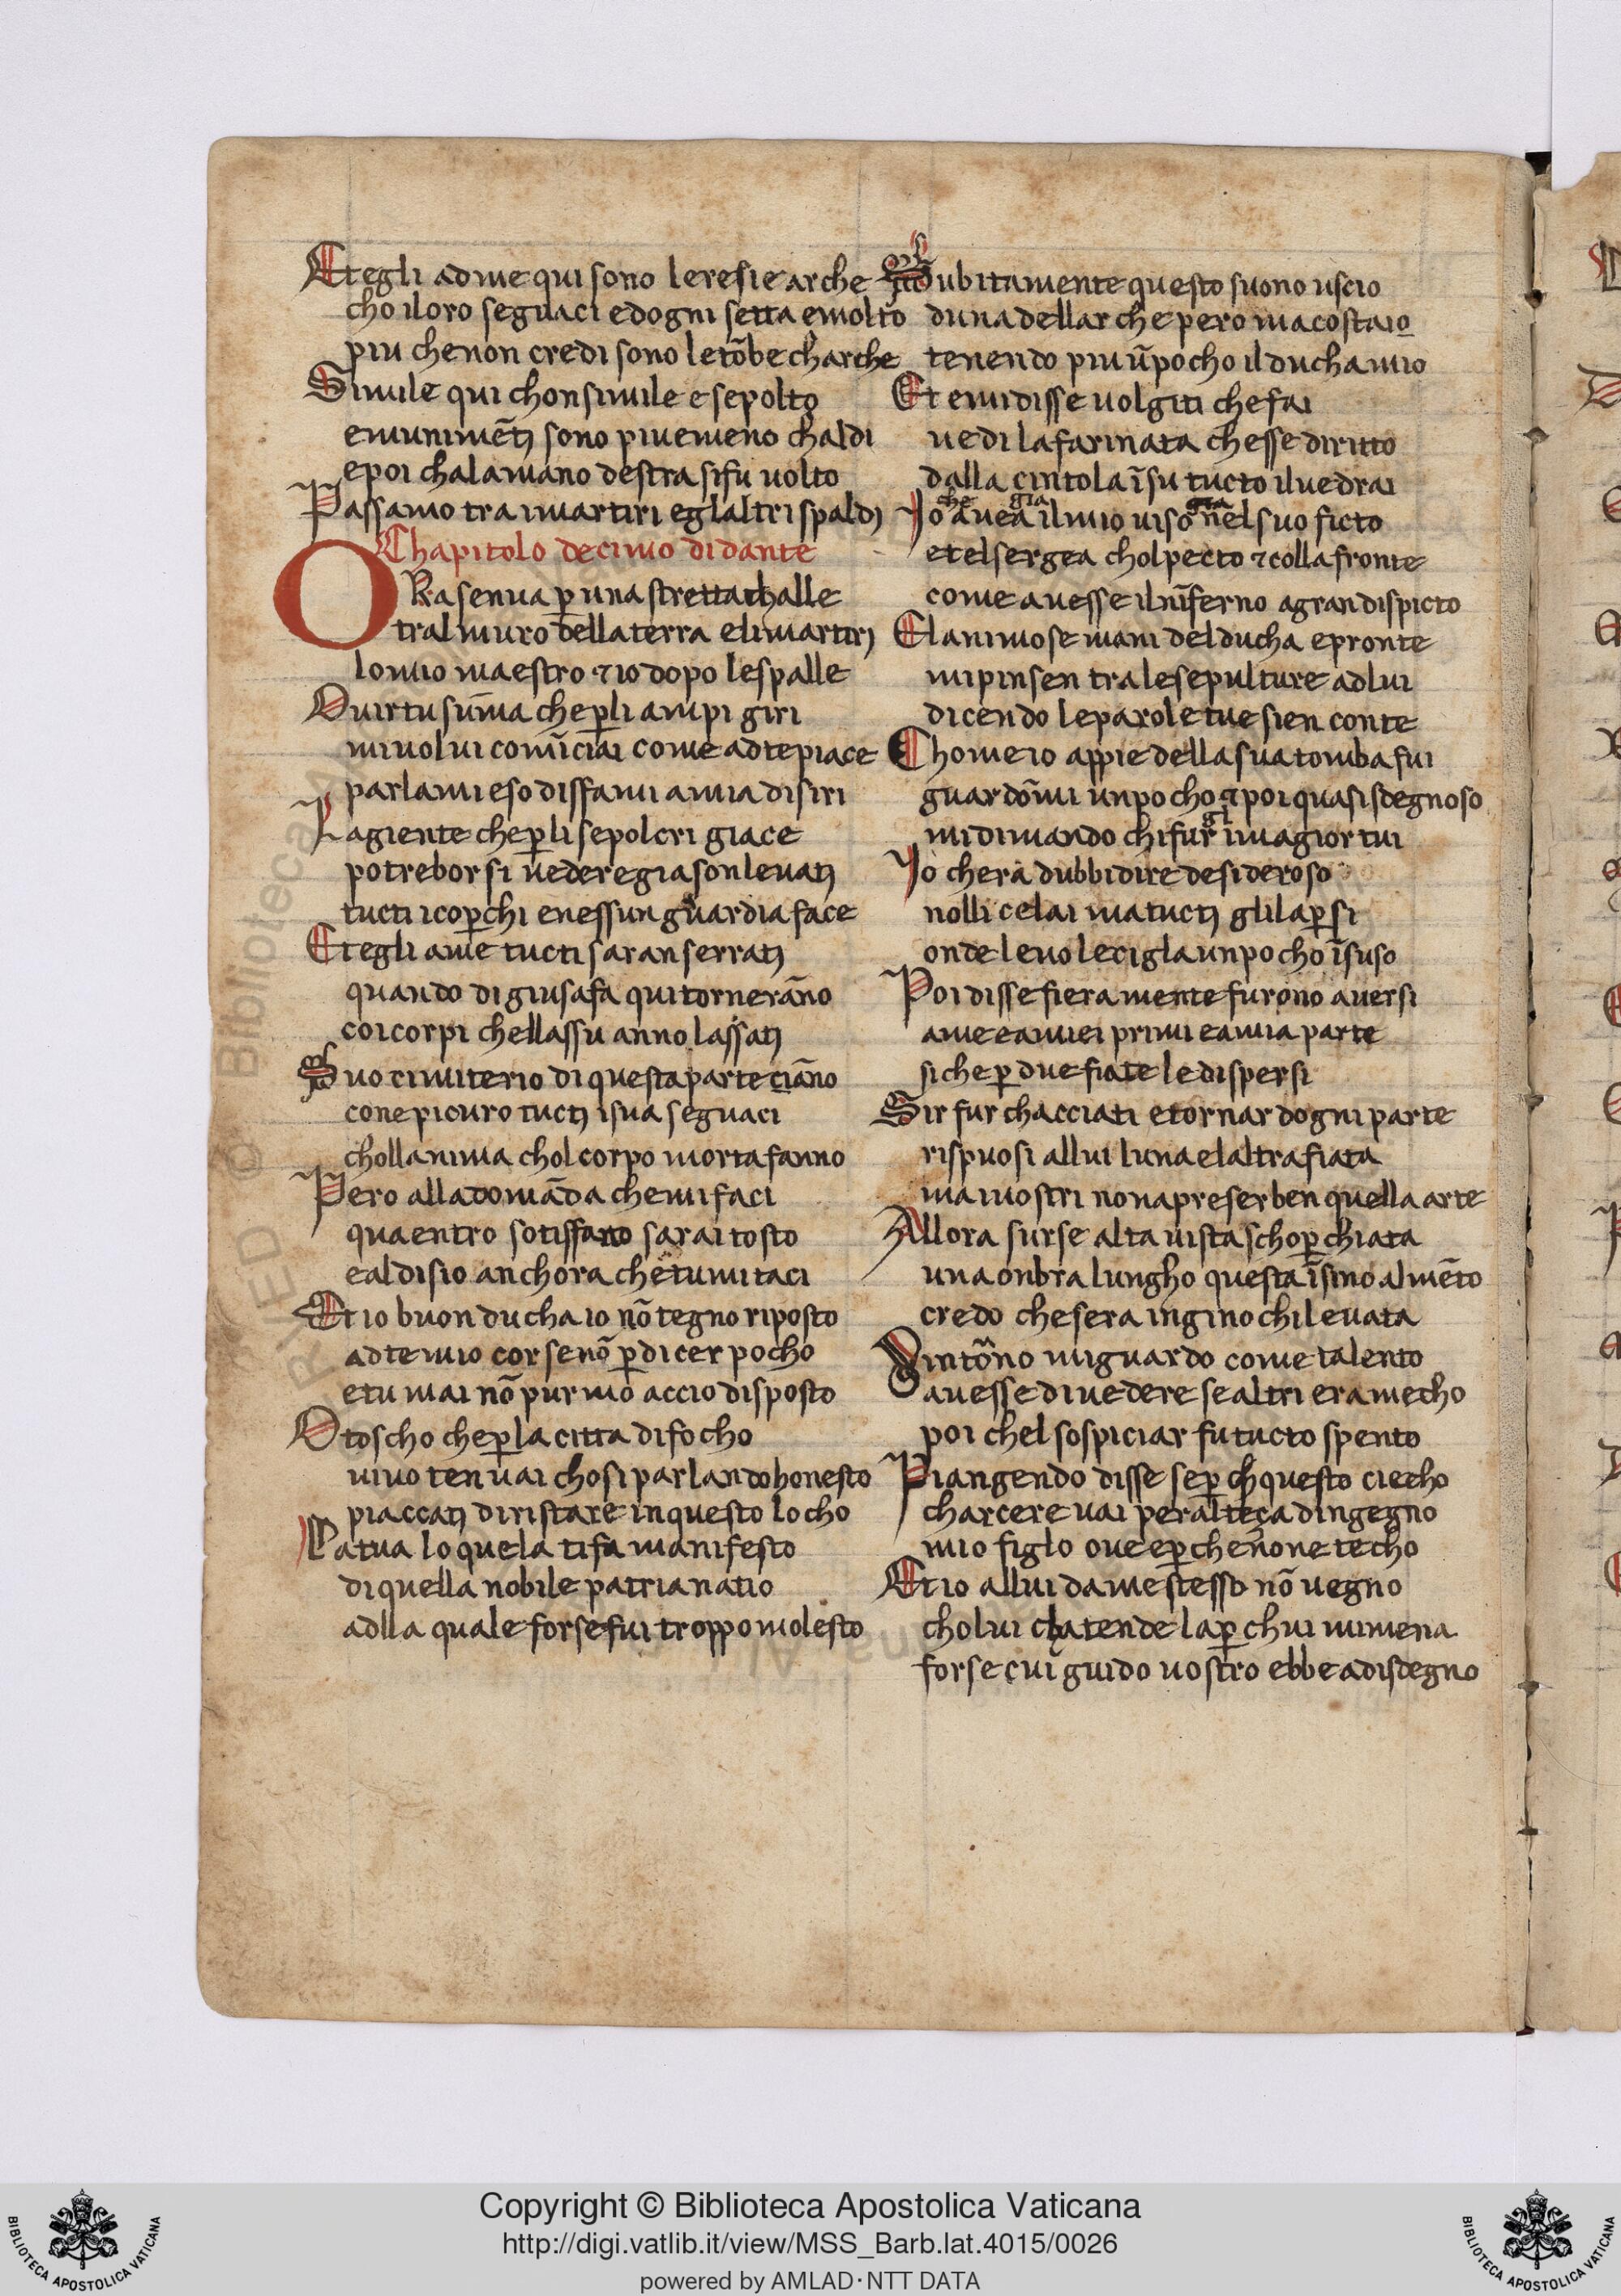 Et egli adme qui sono leresie arche
cho iloro seguaci edogni setta emolto
piu chenon credi sono letōbe charche
Simile qui chonsimile esepolto
emunimēti sono piuemeno chaldi
epoi chalamano destra sifu uolto
Passamo tra imartiri eglaltri spaldi
Chapitolo decimo didante
ORa senua ꝑ una stretta challe
tralmuro della terra elimartiri
lomio maestro ⁊ io dopo lespalle
O uirtu sūma cheꝑli ampi giri
miuolui comīciai come adtepiace
parlami esodisfami amia disiri
Lagiente cheꝑli sepolcri giace
potrebor si uedere giasonleuati
tucti icoꝑchi enessun guardia face
Et egli ame tucti saran serrati
quando digiusafa qui tornerāno
coicorpi chellassu anno lassati
Suo cimiterio di questa parte ciāno
conepicuro tucti isua seguaci
chollanima chol corpo morta fanno
Pero alladomāda chemi faci
quaentro sotisfatto sarai tosto
ealdisio anchora chetumitaci
Et io buon ducha io nō tegno riposto
adte mio cor senō ꝑdicer pocho
etu mai nō pur mo accio disposto
O toscho cheꝑla citta difocho
uiuo ten uai chosi parlando honesto
piaccati diristare inquesto locho
La tua loquela tifa manifesto
diquella nobile patria natio
adlla quale forse fui troppo molesto
Subitamente questo suono uscio
duna dellarche pero macostaio
tenendo piu ūpocho il ducha mio
Et emidisse uolgiti chefai
uedi lafarinata chesse diritto
dalla cintola īsu tucto iluedrai
che gia gia
Io auea ilmio uiso nel suo ficto
etelsergea cholpecto ⁊ colla fronte
come auesse ilnīferno agrandispicto
Elanimose mani delducha epronte
mipinsen tralesepulture adlui
dicendo leparole tue sien conte
Chomeio appie della sua tomba fui
guardōmi unpocho ⁊ poi quasi sdegnoso
gl
midimando chifur imagior tui
Io chera dubbidire desideroso
nolli celai matucti glilaꝑsi
onde leuo lecigla unpocho īsuso
Poi disse fieramente furono auersi
ame eamiei primi eamia parte
siche ꝑ due fiate ledispersi
Sir fur chacciati etornar dogni parte
rispuosi allui luna elaltra fiata
mauostri nonapreserben quella arte
Allora surse alta uista schoꝑchiata
una onbra lungho questa īsino almēto
credo chesera inginochileuata
Dintōrno miguardo cometalento
auesse di uedere sealtri era mecho
poi chel sospiciar fu tucto spento
Piangendo disse seꝑ chquesto ciecho
charcere uai peralteça dingegno
mio figlo oue eꝑche none techo
Et io allui dame stesso nō uegno
cholui chatende laꝑ chui mimena
forse cui guido uostro ebbe adisdegno
Copyright © Biblioteca Apostolica Vaticana
http://digi.vatlib.it/view/MSS_Barb.lat.4015/0026
powered by AMLAD·NTT DATA
BIBLIOTECA APOSTOLICA VATICANA
BIBLIOTECA APOSTOLICA VATICANA